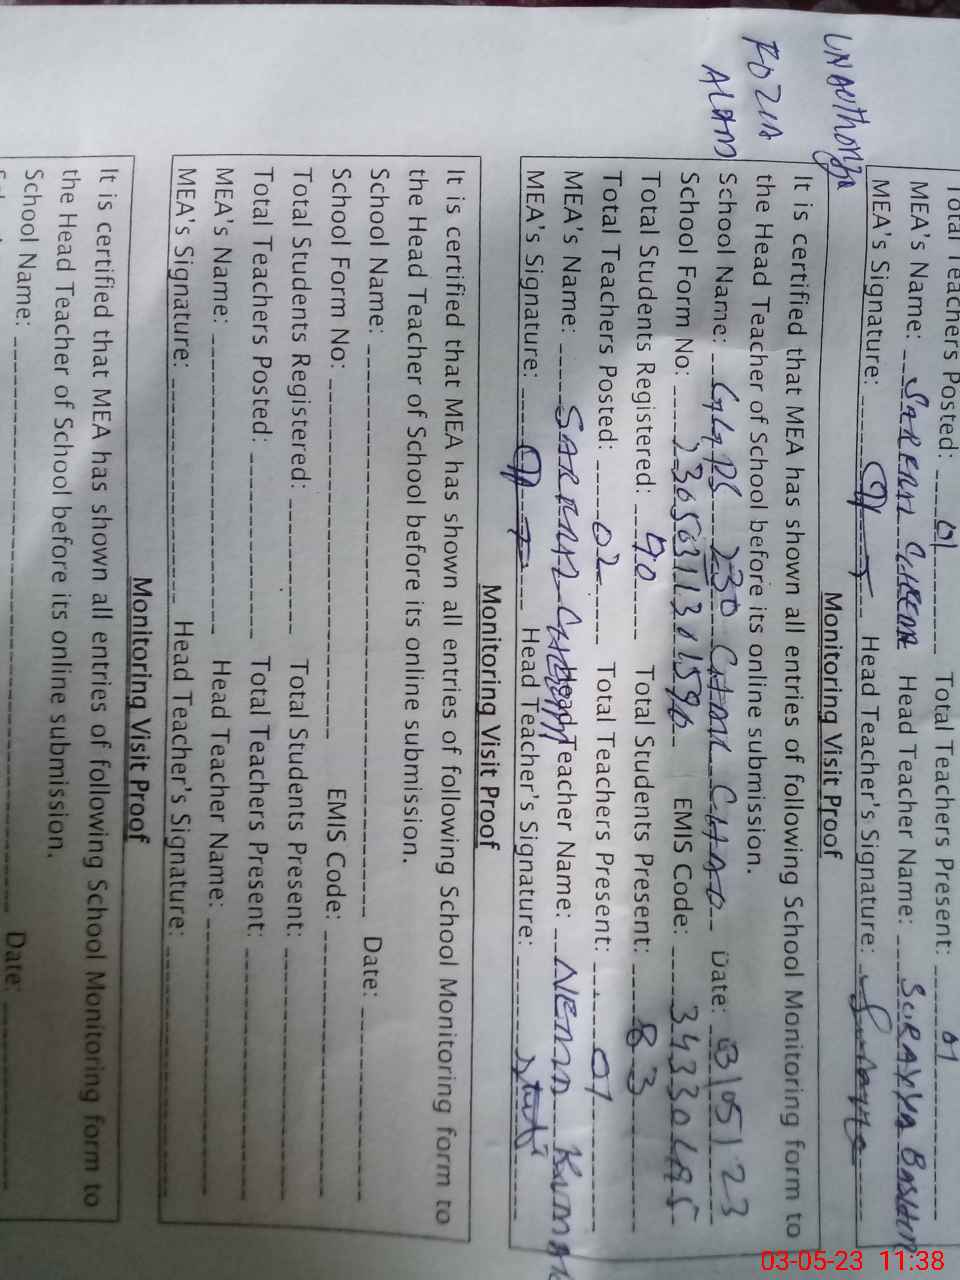 Total Teachers Posted: 01 Total Teachers Present: 01
MEA's Name: Head Teacher Name: SURAYYA BASHIR
MEA's Signature: Head Teacher's Signature:
Monitoring Visit Proof
It is certified that MEA has shown all entries of following School Monitoring form to
the Head Teacher of School before its online submission.
School Name: Date: 03/05/23
School Form No: EMIS Code:
Total Students Registered: 90 Total Students Present: 83
Total Teachers Posted: 02 Total Teachers Present: 01
MEA's Name: Head Teacher Name:
MEA's Signature: Head Teacher's Signature:
ROZIA
ALAM
Monitoring Visit Proof
It is certified that MEA has shown all entries of following School Monitoring form to
the Head Teacher of School before its online submission.
School Name: Date:
School Form No: EMIS Code:
Total Students Registered: Total Students Present:
Total Teachers Posted: Total Teachers Present:
MEA's Name: Head Teacher Name:
MEA's Signature: Head Teacher's Signature:
Monitoring Visit Proof
It is certified that MEA has shown all entries of following School Monitoring form to
the Head Teacher of School before its online submission.
School Name: Date:
03-05-23 11:38